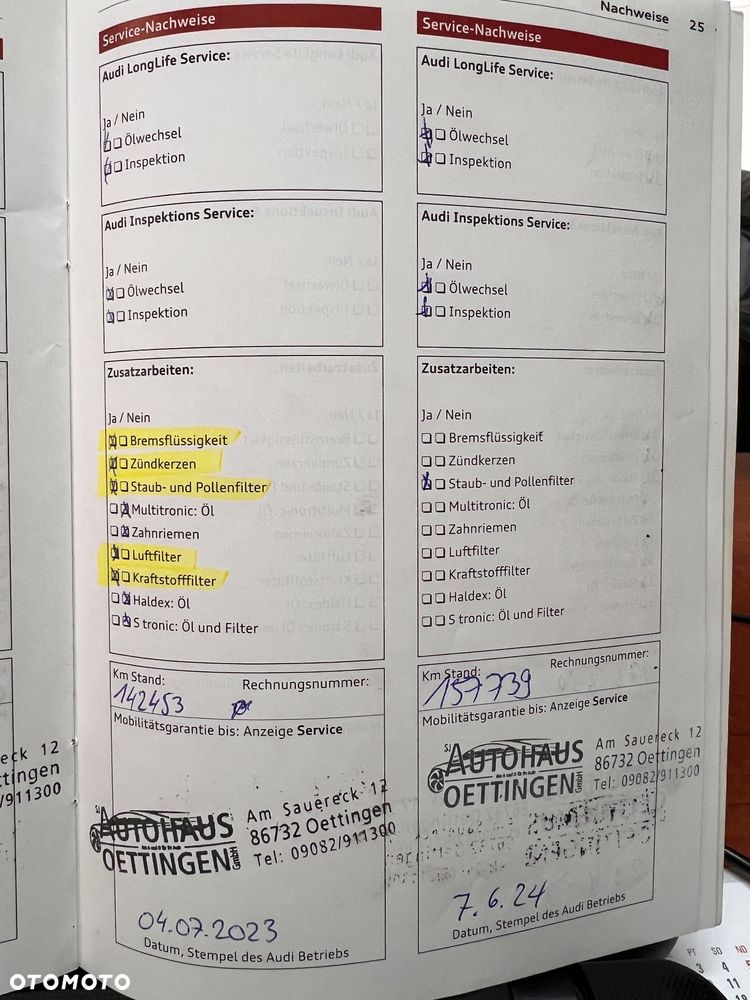 Nachweise 25
Service-Nachweise
Audi LongLife Service:
Ja / Nein
Ölwechsel
Inspektion
Audi Inspektions Service:
Ja / Nein
Ölwechsel
Inspektion
Zusatzarbeiten:
Ja / Nein
Bremsflüssigkeit
Zündkerzen
Staub- und Pollenfilter
Multitronic: Öl
Zahnriemen
Luftfilter
Kraftstofffilter
Haldex: Öl
S tronic: Öl und Filter
Km Stand: Rechnungsnummer:
142453
Mobilitätsgarantie bis: Anzeige Service
AUTOHAUS
OETTINGEN GmbH
Am Sauereck 12
86732 Oettingen
Tel: 09082/911300
04.07.2023
Datum, Stempel des Audi Betriebs
Service-Nachweise
Audi LongLife Service:
Ja / Nein
Ölwechsel
Inspektion
Audi Inspektions Service:
Ja / Nein
Ölwechsel
Inspektion
Zusatzarbeiten:
Ja / Nein
Bremsflüssigkeit
Zündkerzen
Staub- und Pollenfilter
Multitronic: Öl
Zahnriemen
Luftfilter
Kraftstofffilter
Haldex: Öl
S tronic: Öl und Filter
Km Stand: Rechnungsnummer:
157739
Mobilitätsgarantie bis: Anzeige Service
AUTOHAUS
OETTINGEN GmbH
Am Sauereck 12
86732 Oettingen
Tel: 09082/911300
7.6.24
Datum, Stempel des Audi Betriebs
eck 12
ttingen
/911300
PT SO ND
3 4 5
11
OTOMOTO